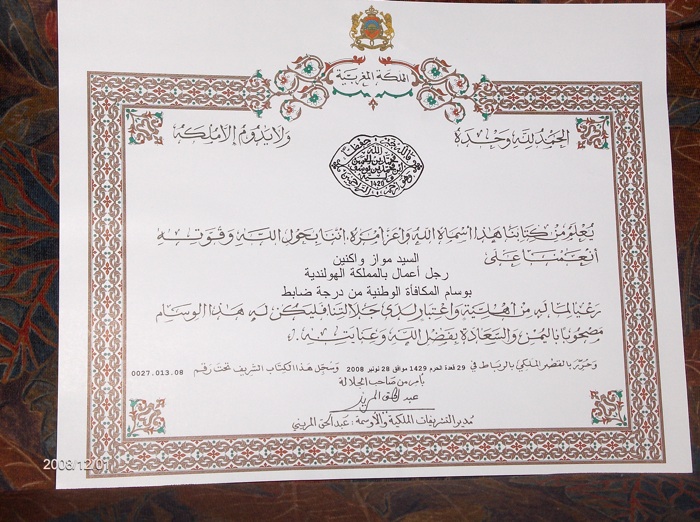 المملكة المغربية
الحمد لله وحده
ولا يدوم إلا ملكه
1420
يُعلم من كتابنا هذا أسماه الله وأعز أمره، أننا بحول الله وقوته
أنعمنا على
السيد مواز واكنين
رجل أعمال بالمملكة الهولندية
بوسام المكافأة الوطنية من درجة ضابط
رعيا لما له من أهلية واعتبار لدى جلالتنا فليكن له هذا الوسام
مصحوبا باليمن والسعادة بفضل الله وعنايته
وحرر بالقصر الملكي بالرباط في 29 قعدة الحرم 1429 موافق 28 نونبر 2008 وسجل هذا الكتاب الشريف تحت رقم 0027.013.08
بأمر من صاحب الجلالة
عبد الحق المريني
مدير التشريفات الملكية والأوسمة : عبد الحق المريني
2008/12/01